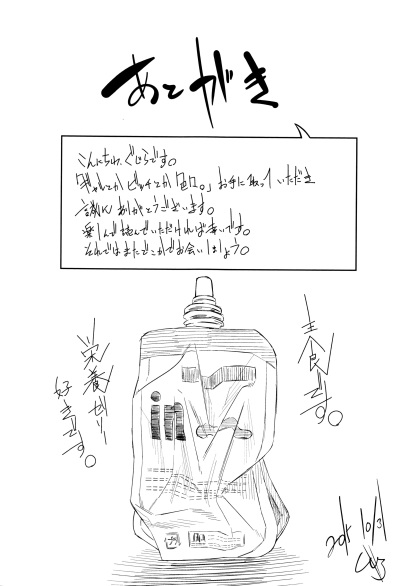 あとがき
こんにちわ、ぐじらです。
「ギャルとかビッチとかエロ。」お手に取っていただき
誠にありがとうございます。
楽しんで読んでいただければ幸いです。
それではまたどこかでお会いしましょう。
主食です。
栄養ゼリー
好きです。
in
2015 10/31